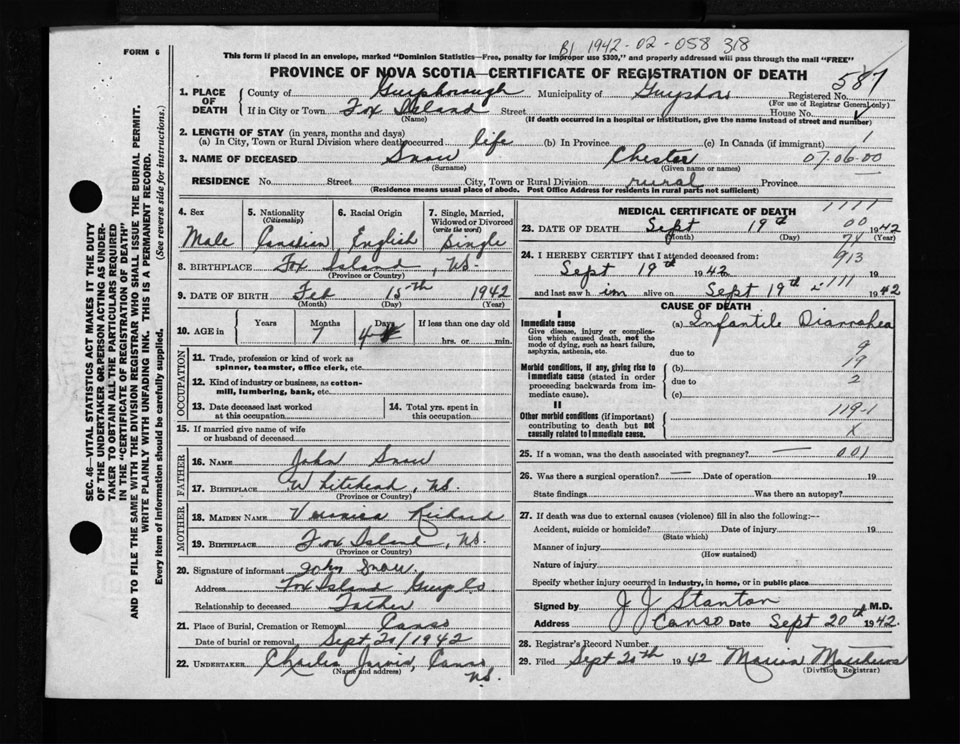 B1 1942-02-058318
FORM 6
This form if placed in an envelope, marked "Dominion Statistics—Free, penalty for improper use $300," and properly addressed will pass through the mail "FREE"
PROVINCE OF NOVA SCOTIA—CERTIFICATE OF REGISTRATION OF DEATH
587
SEC. 46—VITAL STATISTICS ACT MAKES IT THE DUTY
OF THE UNDERTAKER OR PERSON ACTING AS UNDER-
TAKER TO OBTAIN ALL THE PARTICULARS REQUIRED
IN THE "CERTIFICATE OF REGISTRATION OF DEATH"
AND TO FILE THE SAME WITH THE DIVISION REGISTRAR WHO SHALL ISSUE THE BURIAL PERMIT.
WRITE PLAINLY WITH UNFADING INK. THIS IS A PERMANENT RECORD.
Every item of information should be carefully supplied. (See reverse side for instructions.)
1. PLACE OF DEATH
County of Guysborough Municipality of Guysboro Registered No.
(For use of Registrar General only)
If in City or Town Fox Island Street House No.
(Name) (If death occurred in a hospital or institution, give the name instead of street and number)
2. LENGTH OF STAY (in years, months and days)
(a) In City, Town or Rural Division where death occurred life (b) In Province (c) In Canada (if immigrant)
3. NAME OF DECEASED Snow Chester 07.06.00
(Surname) (Given name or names)
RESIDENCE No. Street City, Town or Rural Division rural Province
(Residence means usual place of abode. Post Office Address for residents in rural parts not sufficient)
4. Sex
Male
5. Nationality
(Citizenship)
Canadian
6. Racial Origin
English
7. Single, Married,
Widowed or Divorced
(write the word)
Single
8. BIRTHPLACE Fox Island, NS.
(Province or County)
9. DATE OF BIRTH Feb 15th 1942
(Month) (Day) (Year)
10. AGE in
Years Months Days If less than one day old
7 4 hrs. or min.
OCCUPATION
11. Trade, profession or kind of work as
spinner, teamster, office clerk, etc.
12. Kind of industry or business, as cotton-
mill, lumbering, bank, etc.
13. Date deceased last worked
at this occupation
14. Total yrs. spent in
this occupation
15. If married give name of wife
or husband of deceased
FATHER
16. NAME John Snow
17. BIRTHPLACE Whitehead, NS.
(Province or County)
MOTHER
18. MAIDEN NAME Veronica Richard
19. BIRTHPLACE Fox Island, NS.
(Province or County)
20. Signature of informant John Snow
Address Fox Island Guys Co
Relationship to deceased Father
21. Place of Burial, Cremation or Removal Canso
Date of burial or removal Sept 20/1942
22. UNDERTAKER Charlie Canso
(Name and address) NS.
MEDICAL CERTIFICATE OF DEATH 1111
23. DATE OF DEATH Sept 19th 1942
(Month) (Day) (Year)
00
74
24. I HEREBY CERTIFY that I attended deceased from: 913
Sept 19th 1942 19
and last saw him alive on Sept 19th 1942
111
CAUSE OF DEATH
I
Immediate cause
Give disease, injury or complica-
tion which caused death, not the
mode of dying, such as heart failure,
asphyxia, asthenia, etc.
(a) Infantile Diarrahea
due to 9
Morbid conditions, if any, giving rise to
immediate cause (stated in order
proceeding backwards from im-
mediate cause).
(b)
due to 2
(c)
II
Other morbid conditions (if important)
contributing to death but not
causally related to immediate cause.
119-1
X
25. If a woman, was the death associated with pregnancy? — 001
26. Was there a surgical operation? — Date of operation 19
State findings Was there an autopsy?
27. If death was due to external causes (violence) fill in also the following:—
Accident, suicide or homicide? Date of injury 19
(State which)
Manner of injury
(How sustained)
Nature of injury
Specify whether injury occurred in industry, in home, or in public place
Signed by J J Stanton M.D.
Address Canso Date Sept 20th 1942.
28. Registrar's Record Number
29. Filed Sept 20th 1942 Marion Matthews
(Division Registrar)